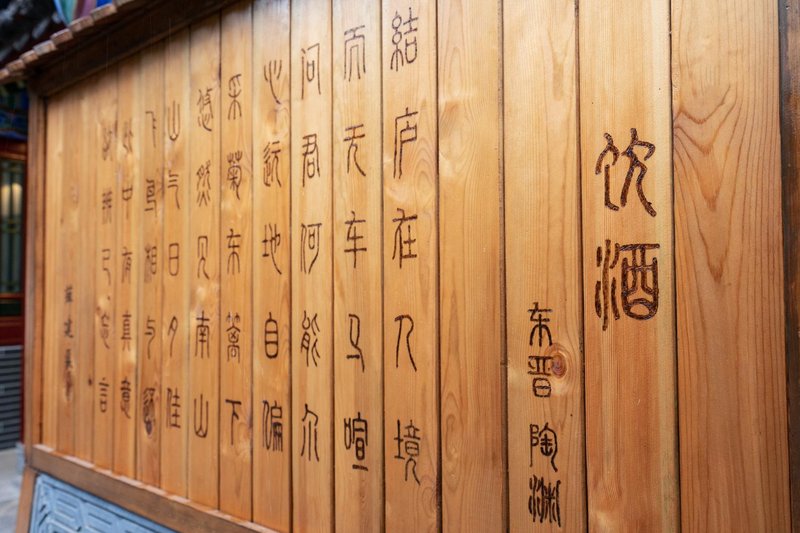 饮酒
东晋陶渊
結庐在人境
而无车马喧
问君何能尔
心远地自偏
采菊东篱下
悠然见南山
山气日夕佳
飞鸟相与还
此中有真意
欲辨已忘言